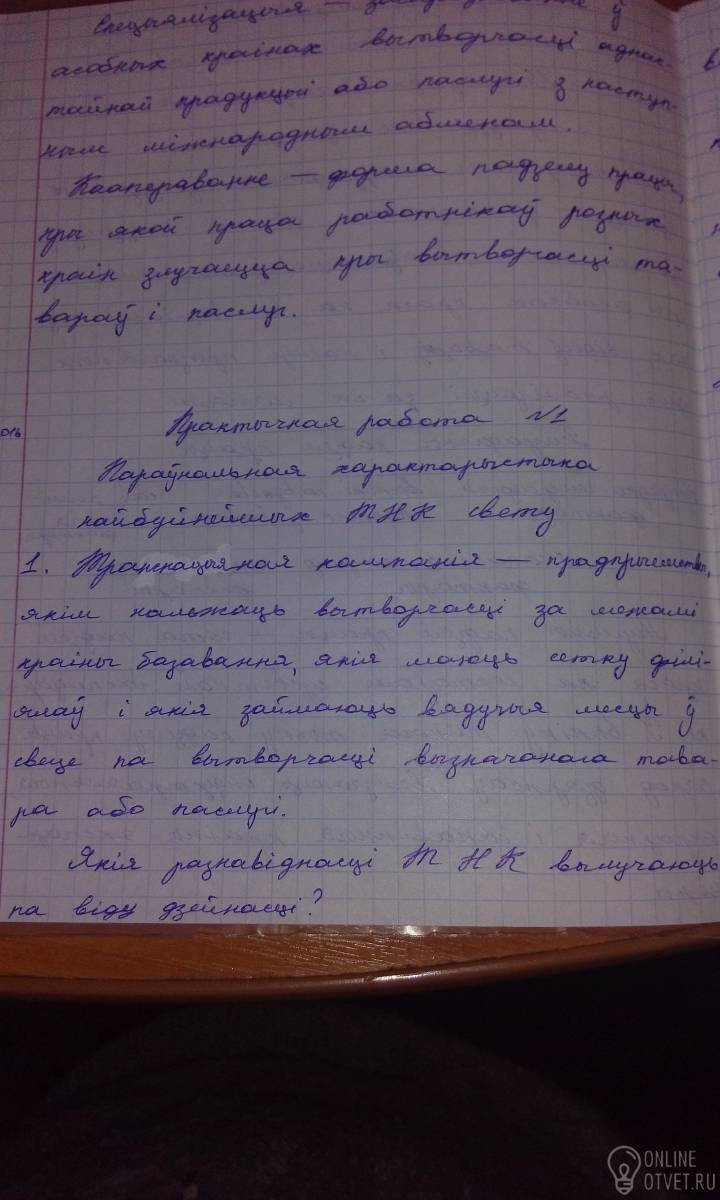 Спецыялізацыя — ў
асобных краінах вытворчасці аднас-
тайнай прадукцыі або паслугі з наступ-
ным міжнародным абменам.
Кааператаванне — форма падзелу працы,
пры якой праца работнікаў розных
краін злучаецца пры вытворчасці та-
вараў і паслуг.
Практычная работа №1
Параўнальная характарыстыка
найбуйнейшых ТНК свету
1. Транснацыяная кампанія — прадпрыемствы,
якім належаць вытворчасці за межамі
краіны базавання, якія маюць сетку філі-
ялаў і якія займаюць вядучыя месцы ў
свеце па вытворчасці вызначанага тава-
ра або паслугі.
Якія разнавіднасці ТНК вылучаюць
па віду дзейнасці?
ONLINE
OTVET.RU